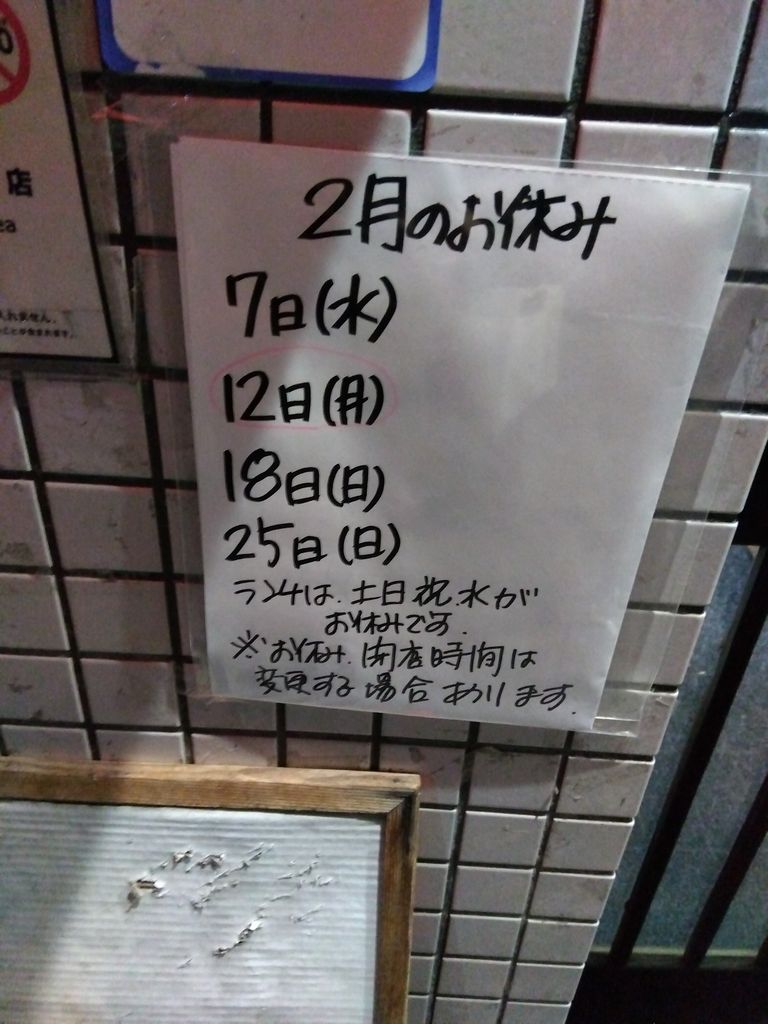 店
2月のお休み
7日(水)
12日(月)
18日(日)
25日(日)
ランチは、土日祝、水が
お休みです。
※お休み、開店時間は
変更する場合あります。